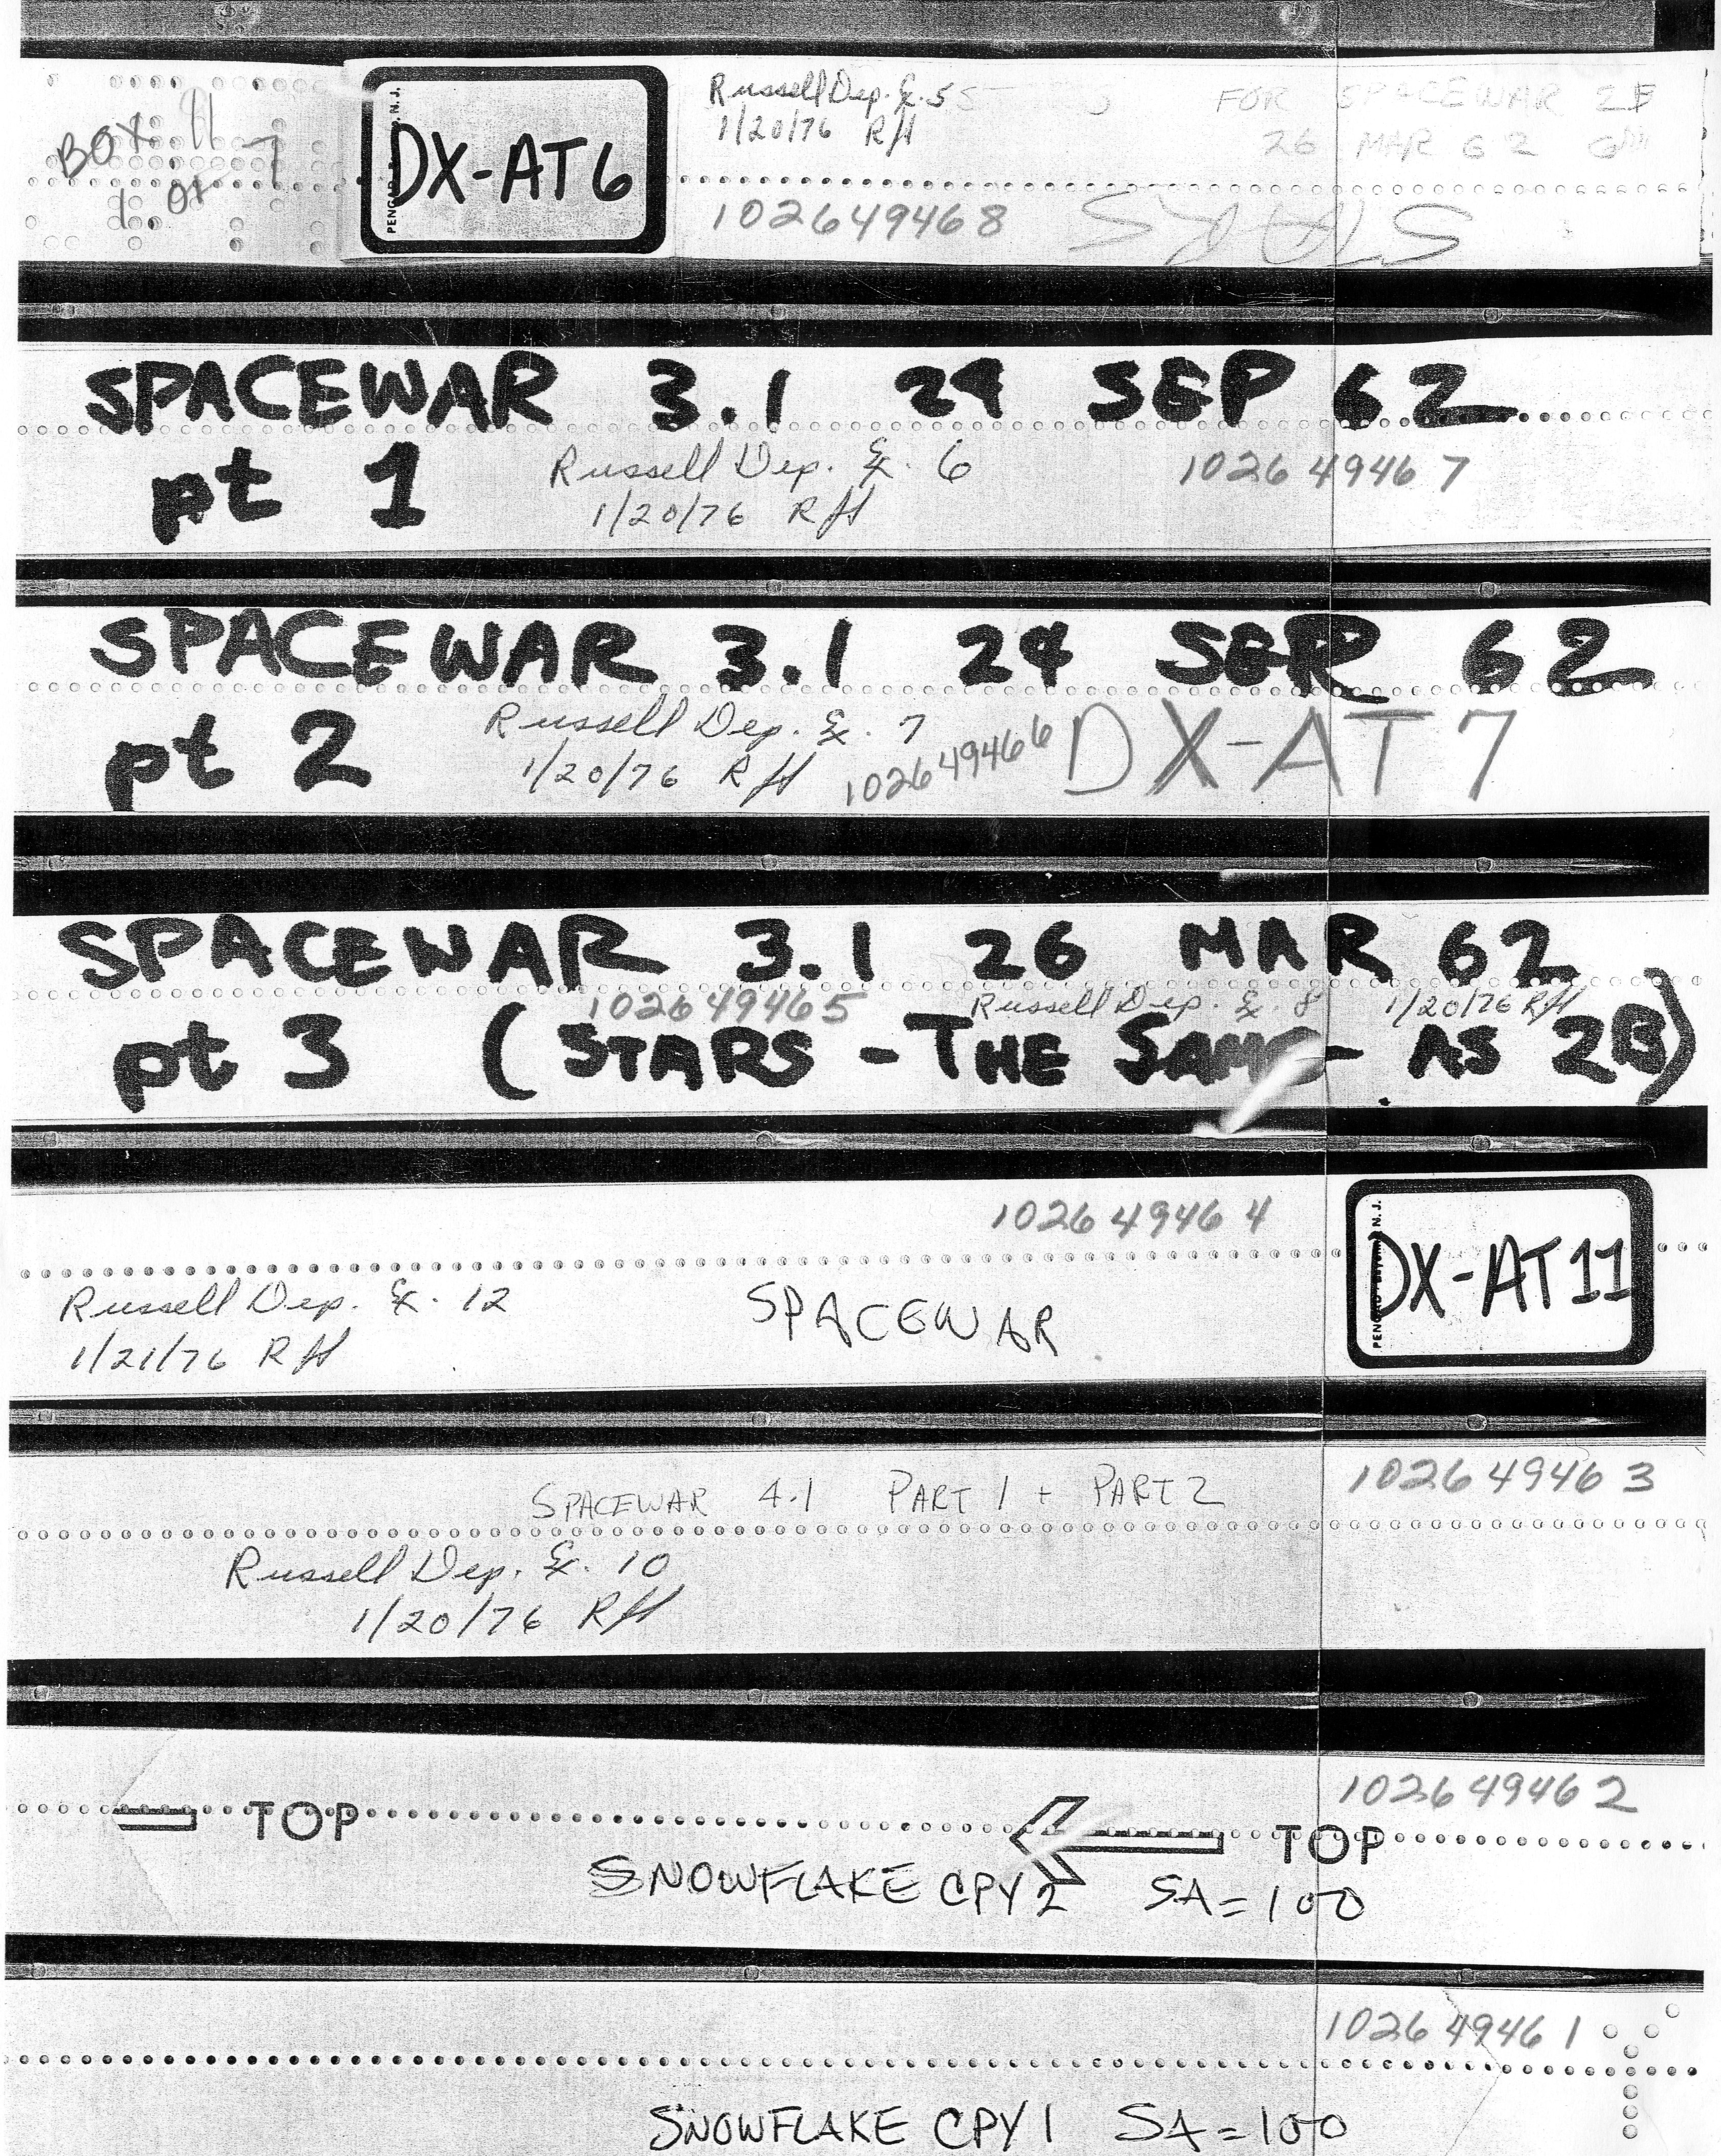 BOX 11
1 of 7
PENGAD
N. J.
DX-AT6
Russell Dep. Ex. 5
1/20/76 RH
FOR SPACEWAR 2B
26 MAR 62
102649468
SPACEWAR 3.1 24 SEP 62
pt 1
Russell Dep. Ex. 6
1/20/76 RH
102649467
SPACEWAR 3.1 24 SEP 62
pt 2
Russell Dep. Ex. 7
1/20/76 RH
102649466
DX-AT 7
SPACEWAR 3.1 26 MAR 62
102649465
Russell Dep. Ex. 8 1/20/76 RH
pt 3 (STARS - THE SAME - AS 2B)
102649464
PENGAD
N. J.
DX-AT11
Russell Dep. Ex. 12
1/21/76 RH
SPACEWAR
SPACEWAR 4.1 PART 1 + PART 2
102649463
Russell Dep. Ex. 10
1/20/76 RH
102649462
TOP
TOP
SNOWFLAKE CPY 2 SA = 100
102649461
SNOWFLAKE CPY 1 SA = 100